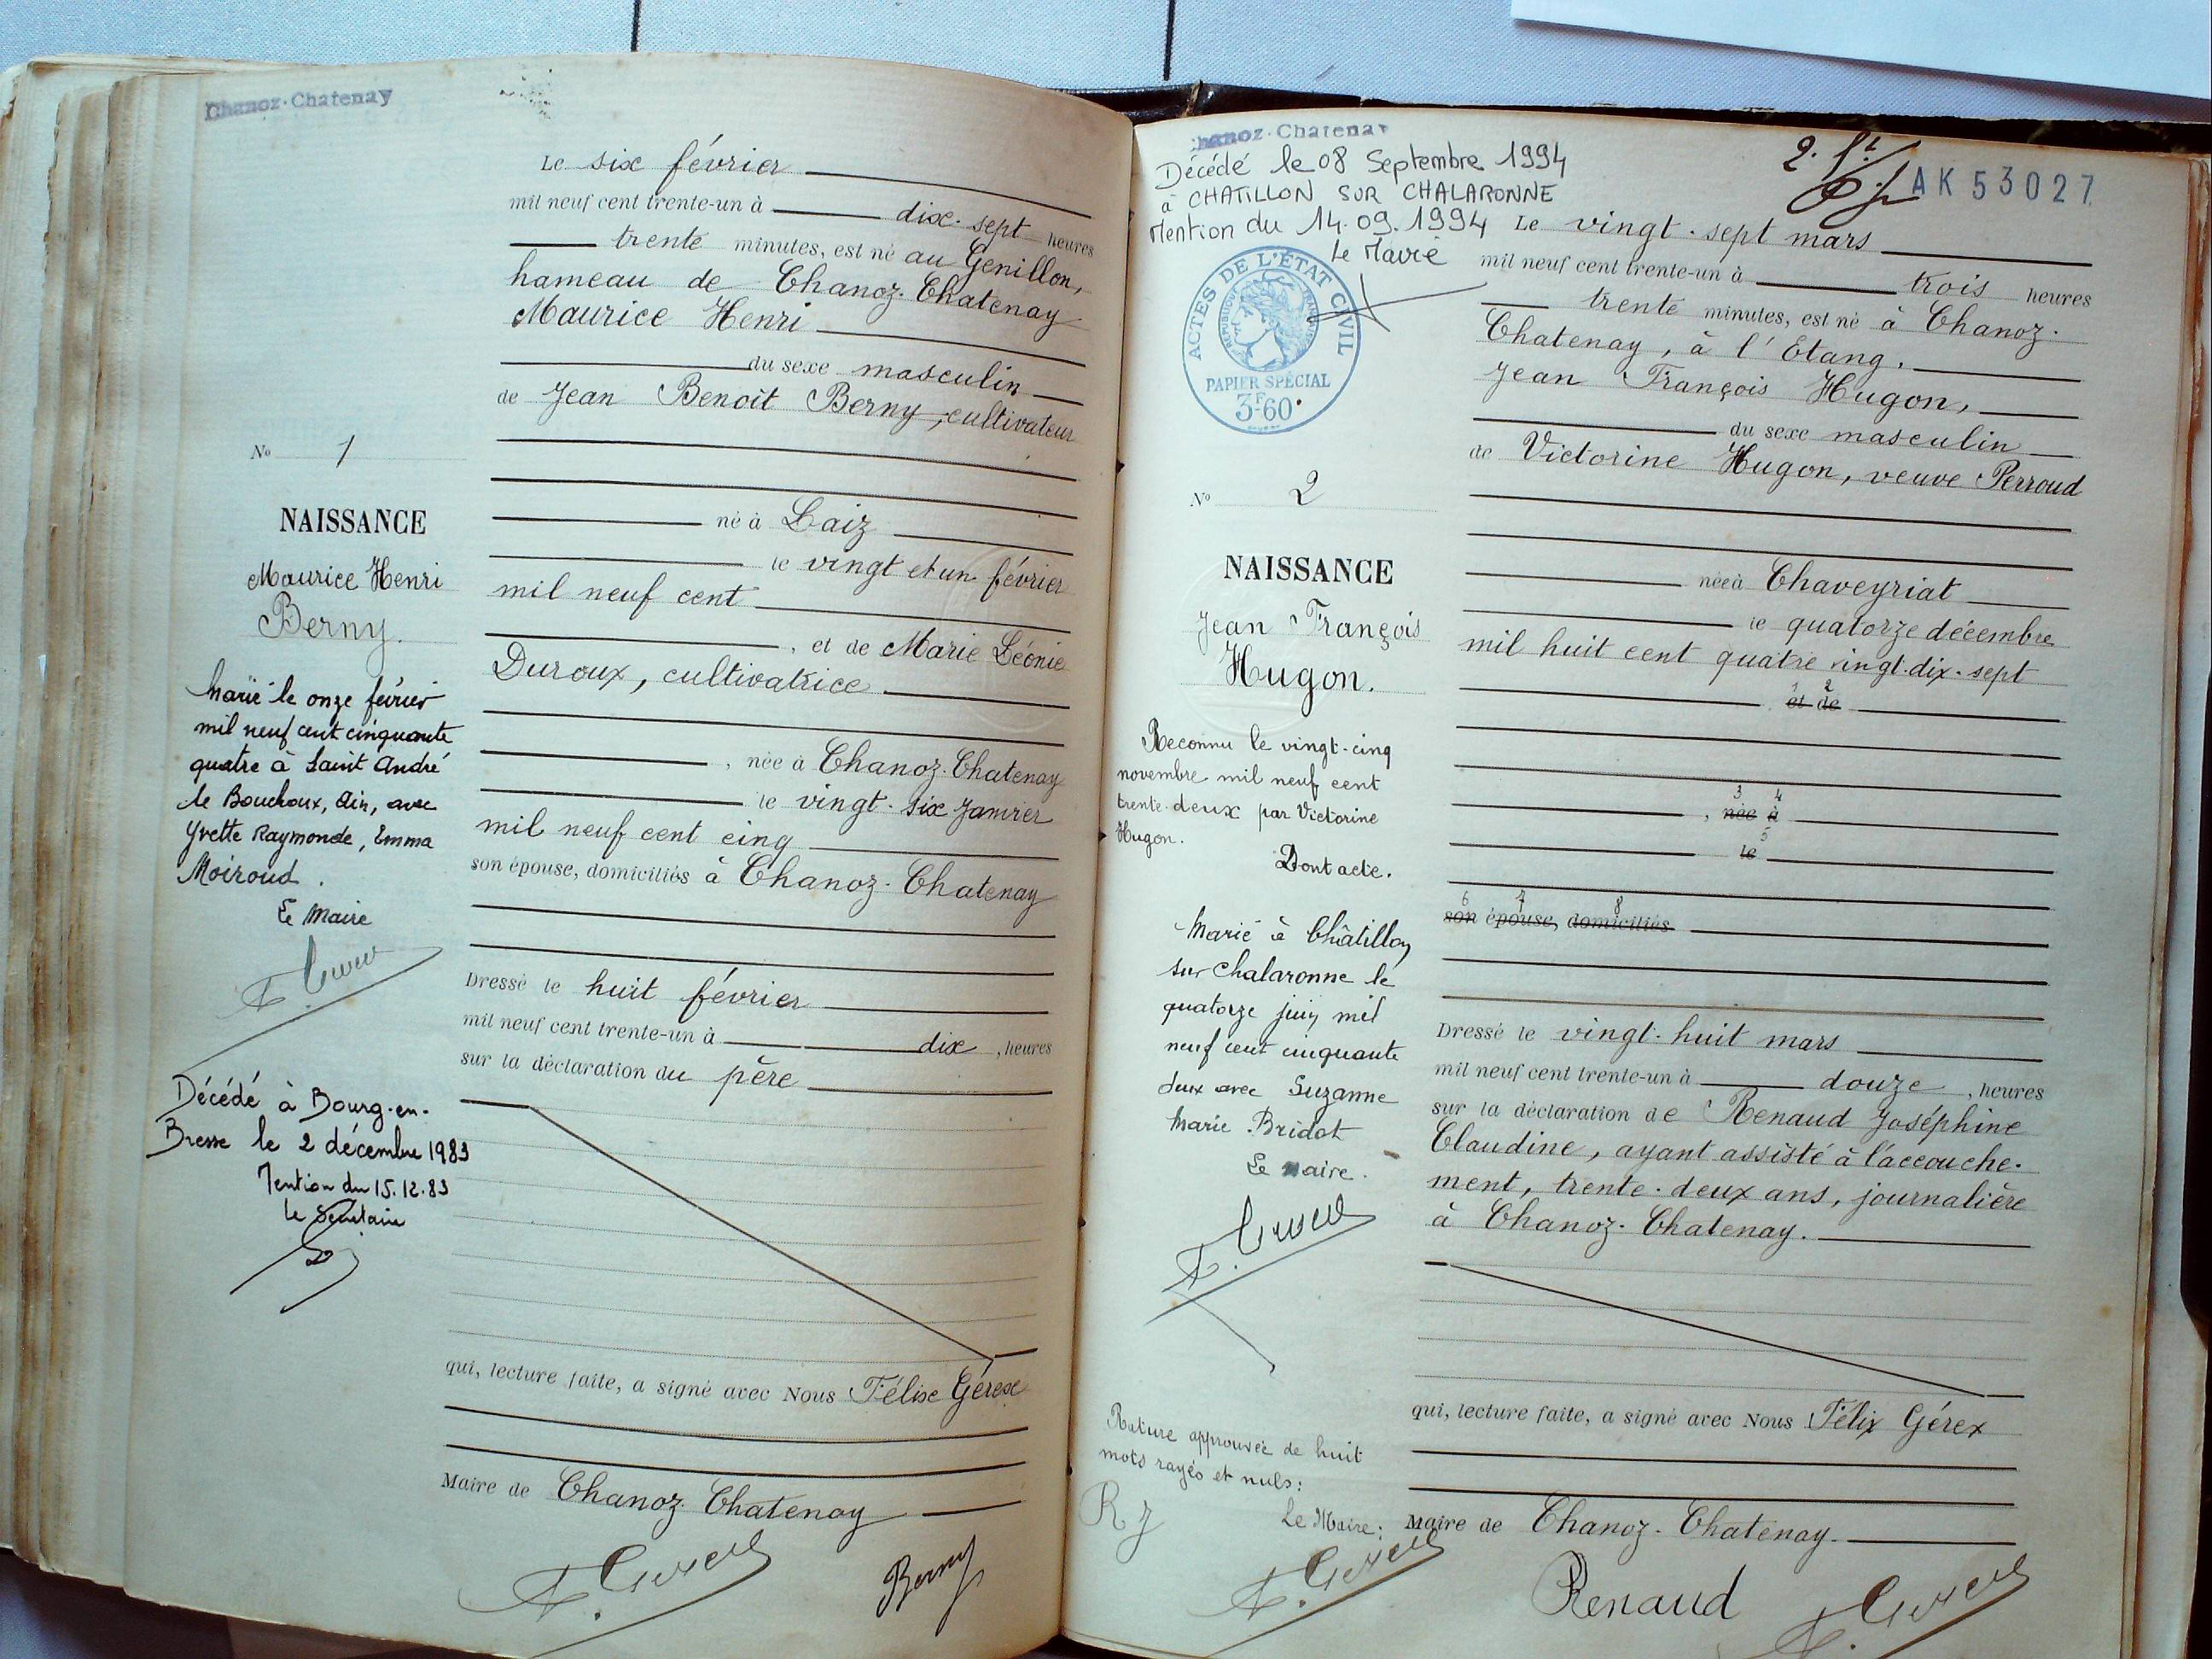 Chanoz-Chatenay
Le six février
mil neuf cent trente-un à dix-sept heures
trente minutes, est né au Genillon,
hameau de Chanoz-Chatenay
Maurice Henri
du sexe masculin
de Jean Benoit Berny, cultivateur
né à Laiz
le vingt et un février
mil neuf cent
, et de Marie Léonie
Duroux, cultivatrice
, née à Chanoz-Chatenay
le vingt-six Janvier
mil neuf cent cinq
son épouse, domiciliés à Chanoz-Chatenay
Dressé le huit février
mil neuf cent trente-un à dix, heures
sur la déclaration du père
qui, lecture faite, a signé avec Nous Félix Gérex
Maire de Chanoz Chatenay
Berny
No 1
NAISSANCE
Maurice Henri
Berny.
Marié le onze février
mil neuf cent cinquante
quatre à Saint André
le Bouchoux, Ain, avec
Yvette Raymonde, Emma
Moiroud.
Le Maire
Décédé à Bourg-en-
Bresse le 2 décembre 1983
Mention du 15.12.83
Le Secrétaire
Chanoz-Chatenay
Décédé le 08 Septembre 1994
à CHATILLON SUR CHALARONNE
Mention du 14.09.1994
Le Maire
ACTES DE L'ÉTAT CIVIL
PAPIER SPÉCIAL
3F60
AK 53027
Le vingt-sept mars
mil neuf cent trente-un à trois heures
trente minutes, est né à Chanoz-
Chatenay, à l'Etang,
Jean François Hugon,
du sexe masculin
de Victorine Hugon, veuve Perroud
née à Chaveyriat
le quatorze décembre
mil huit cent quatre vingt-dix-sept
1 2
et de
3 4
, née à
5
le
6 7 8
son épouse, domiciliés
Dressé le vingt-huit mars
mil neuf cent trente-un à douze, heures
sur la déclaration de Renaud Joséphine
Claudine, ayant assisté à l'accouche-
ment, trente-deux ans, journalière
à Chanoz-Chatenay.
qui, lecture faite, a signé avec Nous Félix Gérex
Maire de Chanoz-Chatenay.
Renaud
No 2
NAISSANCE
Jean François
Hugon.
Reconnu le vingt-cinq
novembre mil neuf cent
trente-deux par Victorine
Hugon.
Dont acte.
Marié à Châtillon
sur Chalaronne le
quatorze juin mil
neuf cent cinquante
deux avec Suzanne
Marie Bridot
Le Maire.
Rature approuvée de huit
mots rayés et nuls:
R J
Le Maire: